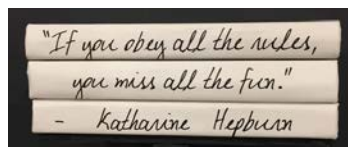 "If you obey all the rules,
you miss all the fun."
- Katharine Hepburn